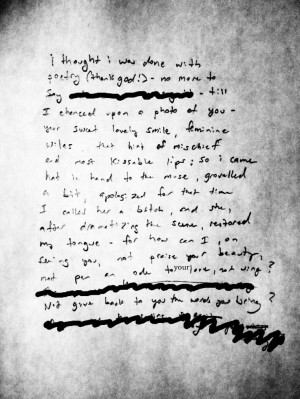 i thought i was done with
poetry (thank god!) - no more to
say - till
I chanced upon a photo of you -
your sweet lovely smile, feminine
wiles, that hint of mischief
and most kissable lips; so i came
hat in hand to the muse, grovelled
a bit, apologized for that time
I called her a bitch, and she,
after dramatizing the scene, restored
my tongue - for how can I, on
seeing you, not praise your beauty,
not pen an ode to your love, not wing?
Not give back to you the words you bring?